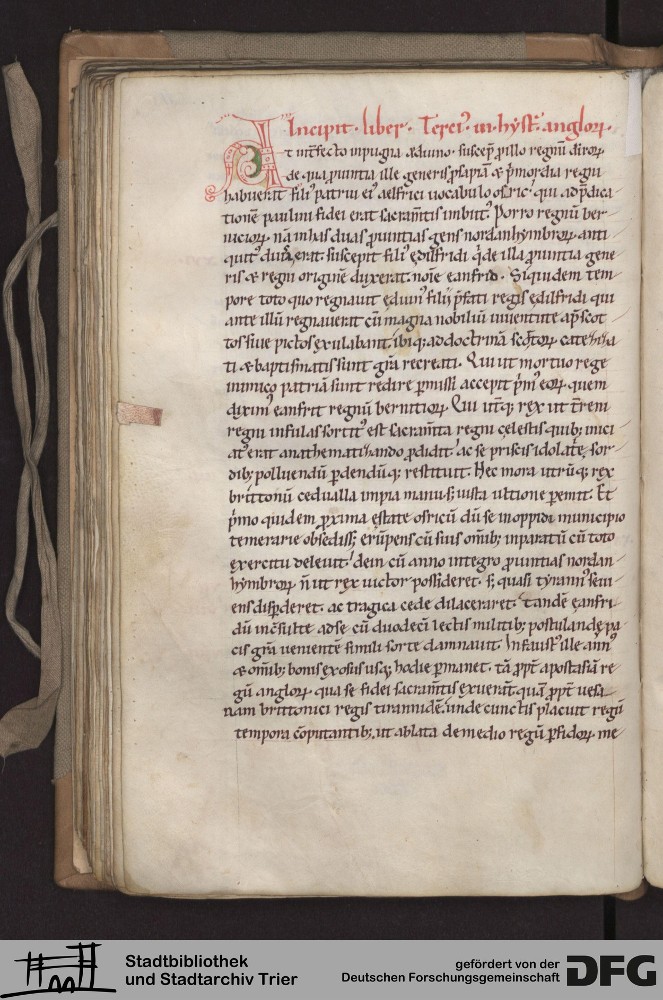 Incipit · liber · Terci᷒ · in · hyst̄ · anglorꝝ ·
At int̄fecto inpugna æduino · suscep̄ ꝓ illo regnū dirorꝝ
de qua ꝓuintia ille generis ꝓsapiā & p̄mordia regni
habuerat fili᷒ patrui ei᷒ aelfrici uocabulo osric · qui ad p̄dica
tionem paulini fidei erat sacram̄tis imbut᷒. Porro regnū ber
niciorꝝ · nā in has duas ꝓuintias gens nordanhymbrorꝝ anti
quit᷒ diuisa erat · suscepit fili᷒ ędilfridi q̄ de illa ꝓuintia gene
ris & regni originē duxerat · noīe eanfrid · Siquidem tem
pore toto quo regnauit eduin᷒ filii p̄fati regis ędilfridi qui
ante illū regnauerat cū magna nobiliū iuuentute ap̄ scot
tos siue pictos exulabant · ibiq; ad doctrinā scottorꝝ catezizа
ti & baptismatis sunt gr̄a recreati · Qui ut mortuo rege
inimico patriā sunt redire ꝑmissi · accepit p̄m᷒ eorꝝ quem
dixim᷒ eanfrit regnū bernitiorꝝ · Qui ut̄q; rex ut t̄reni
regni infulas sortit᷒ est sacram̄ta regni cęlestis quib; inici
at᷒ erat anathematizando ꝓdidit · ac se priscis idolatrię sor
dib; polluendū ꝑdendūq; restituit · Nec mora utrūq; rex
brittonū cedualla impia manu s; iusta ultione ꝑemit · Et
p̄mo quidem ꝓxima ęstate osricū dū se in oppido municipio
temerarie obsediss; erūpens cū suis om̄ib; inparatū cū toto
exercitu deleuit · dein cū anno integro ꝓuintias nordan
hymbrorꝝ n̄ ut rex uictor possideret · s; quasi tyrann᷒ seui
ens disꝑderet · ac tragica cede dilaceraret · tandē eanfri
dū inc̄sulte ad se cū duodeci lectis militib; postulandę pa
cis gr̄a uenientē simili sorte damnauit · Infaust᷒ ille ann᷒
& om̄ib; bonis exosus usq; hodie ꝑmanet · tā ꝓpt̄ apostasiā re
gū anglorꝝ · qua se fidei sacram̄tis exuerāt quā ꝓpt̄ uesa
nam brittonici regis tirannidē · unde cunctis placuit regū
tempora cōputantib; ut ablata de medio regū ꝑfidorꝝ me
Stadtbibliothek
und Stadtarchiv Trier
gefördert von der
Deutschen Forschungsgemeinschaft
DFG